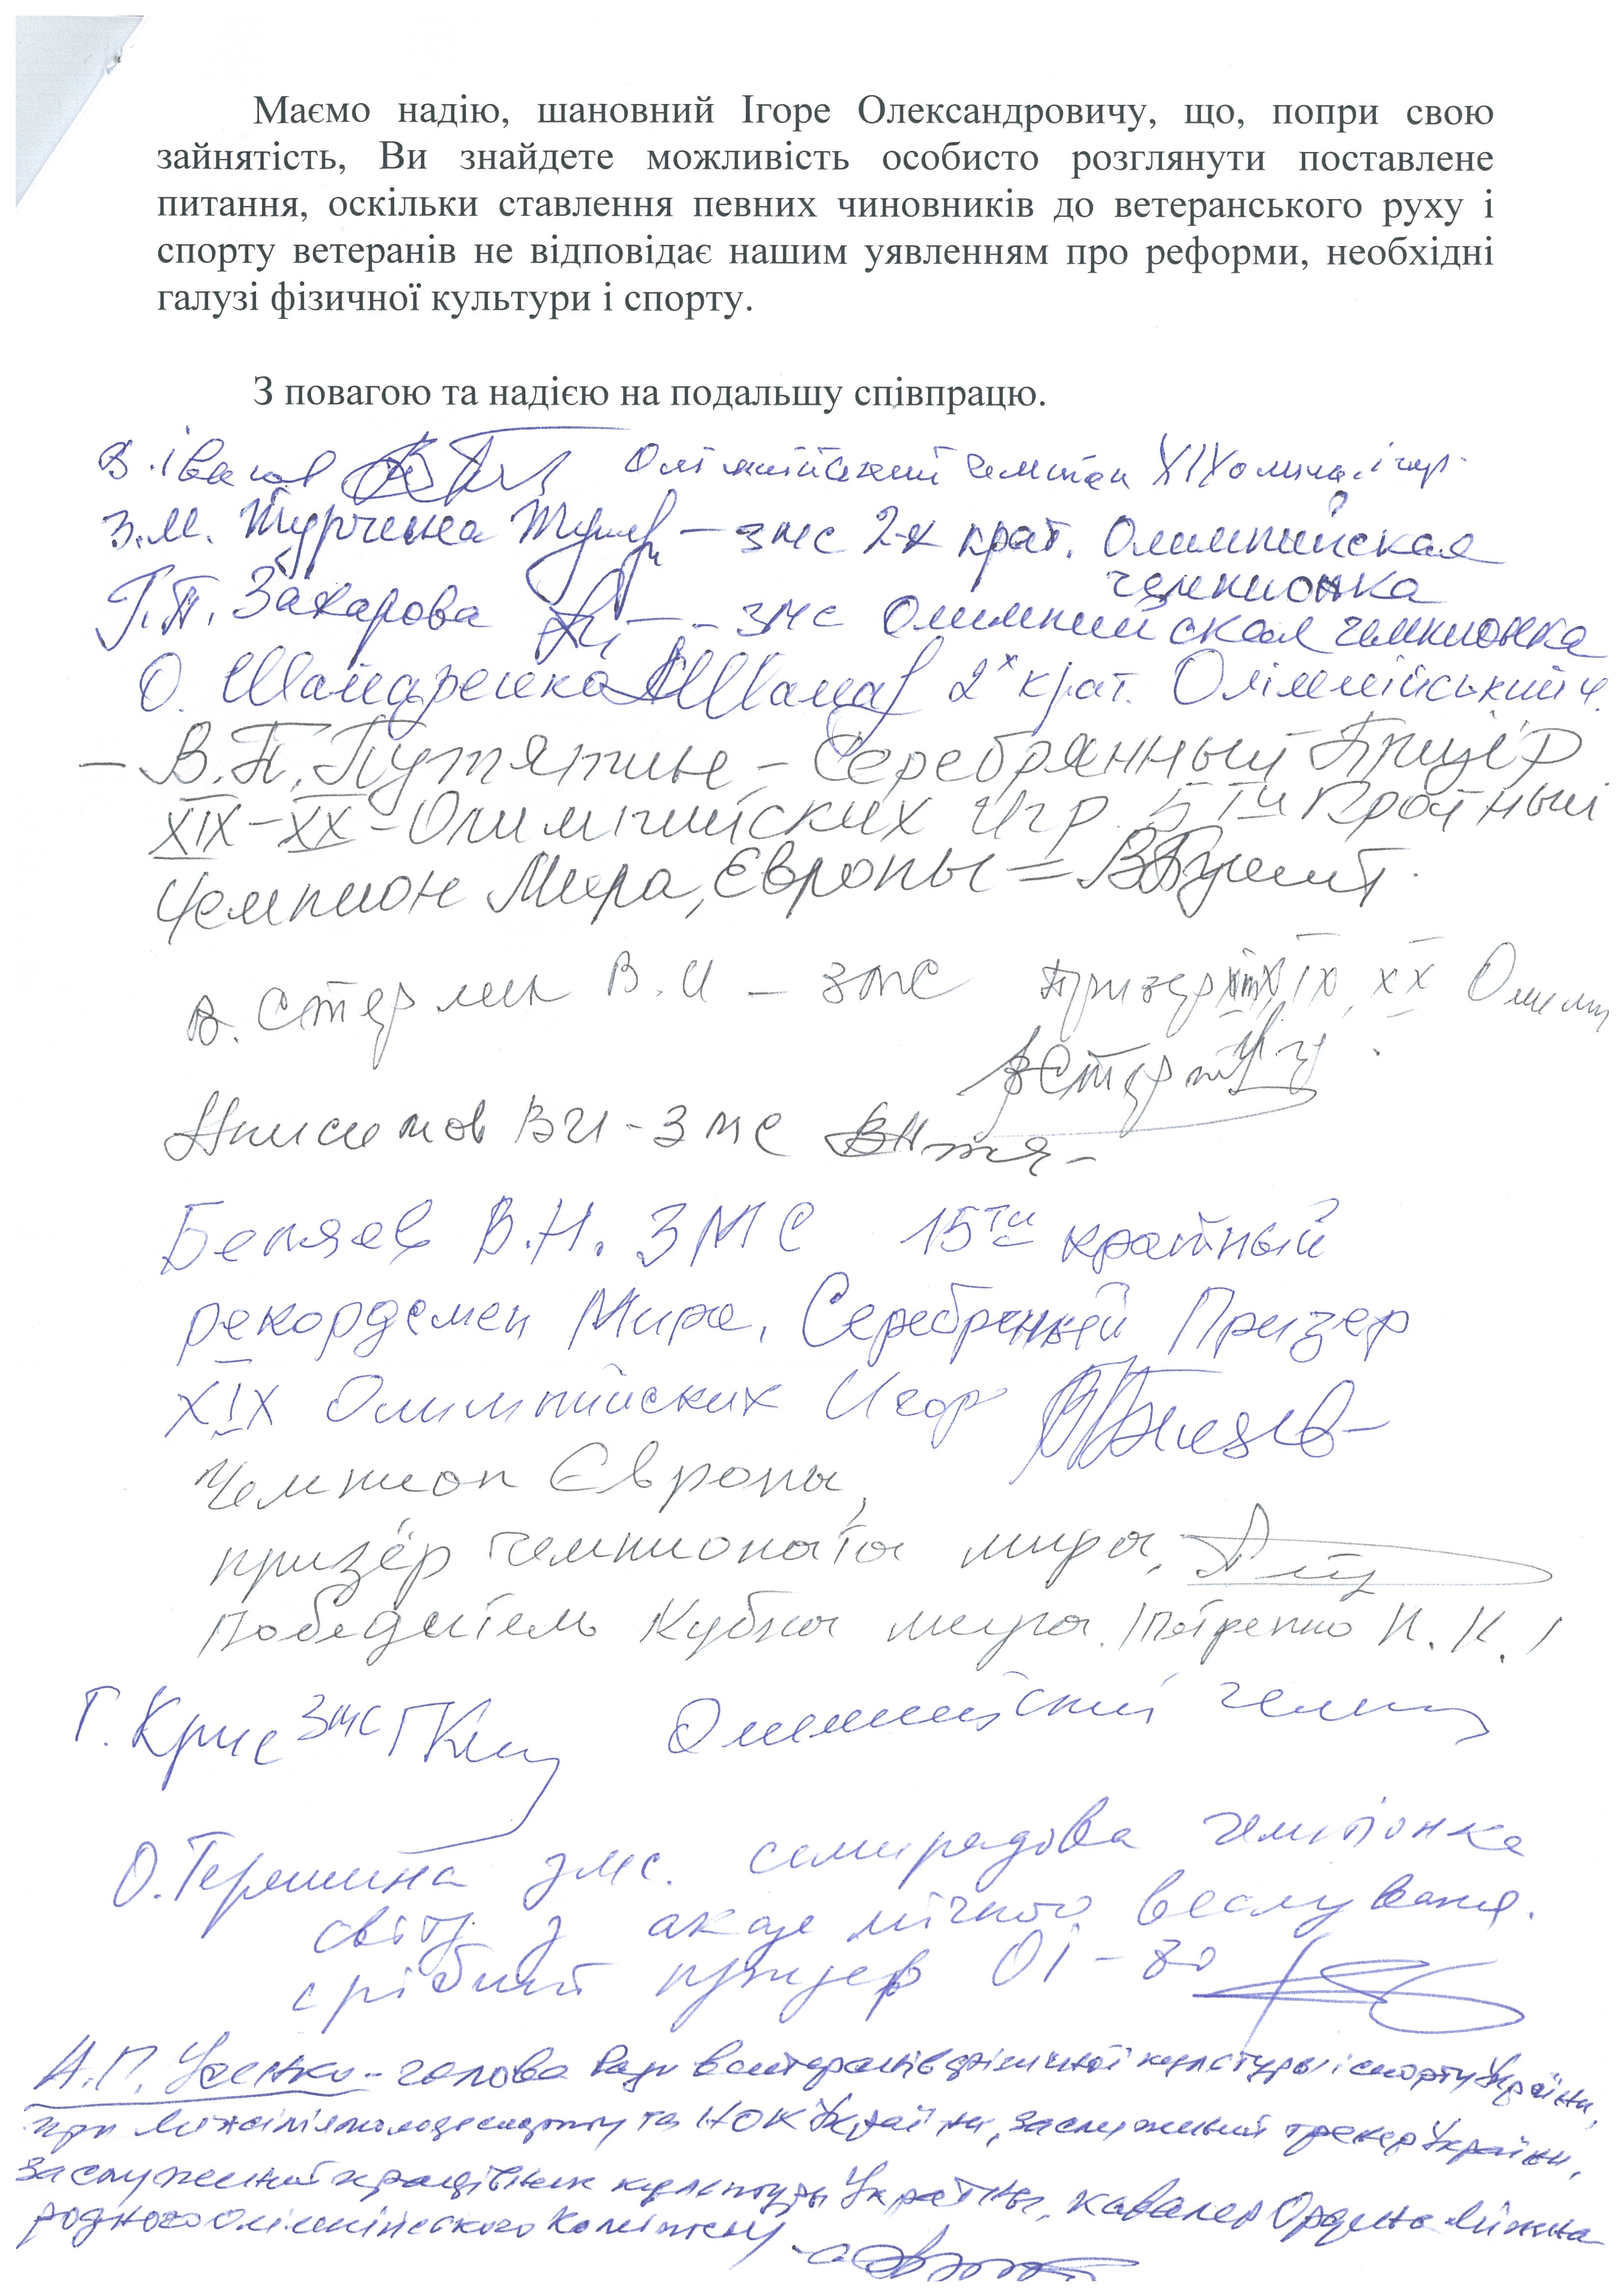 Маємо надію, шановний Ігоре Олександровичу, що, попри свою
зайнятість, Ви знайдете можливість особисто розглянути поставлене
питання, оскільки ставлення певних чиновників до ветеранського руху і
спорту ветеранів не відповідає нашим уявленням про реформи, необхідні
галузі фізичної культури і спорту.
З повагою та надією на подальшу співпрацю.
В. Іванов Олімпійський чемпіон XIX
З.М. Турчина – змс 2-х крат. Олимпийская
чемпионка
Г.П. Захарова – змс Олимпийская чемпионка
О. Шапаренко 2х крат. Олімпійський ч.
– В.П. Путятин – Серебрянный Призёр
XIX–XX – Олимпийских Игр. 5ти Кратный
Чемпион Мира, Европы =
В.И – змс Призер XIX, XX Олимп
Анисимов ВИ – змс
Беляев В.Н. ЗМС 15ти кратный
рекордсмен Мира. Серебрянный Призер
XIX Олимпийских Игор
Чемпион Европы,
призёр чемпионата мира,
Победитель Кубка мира. /Петренко К. /
Г. Крис змс Олимпийский
О. Терошина змс. чемпіонка
світу з академічного веслування.
срібний призер ОІ – 80
А.П. – голова Ради ветеранів фізичної культуры і спорту України,
при та НОК України, заслужений тренер України,
заслужений працівник культуры України, Кавалер Ордена Міжна
родного Олімпійского Комітету